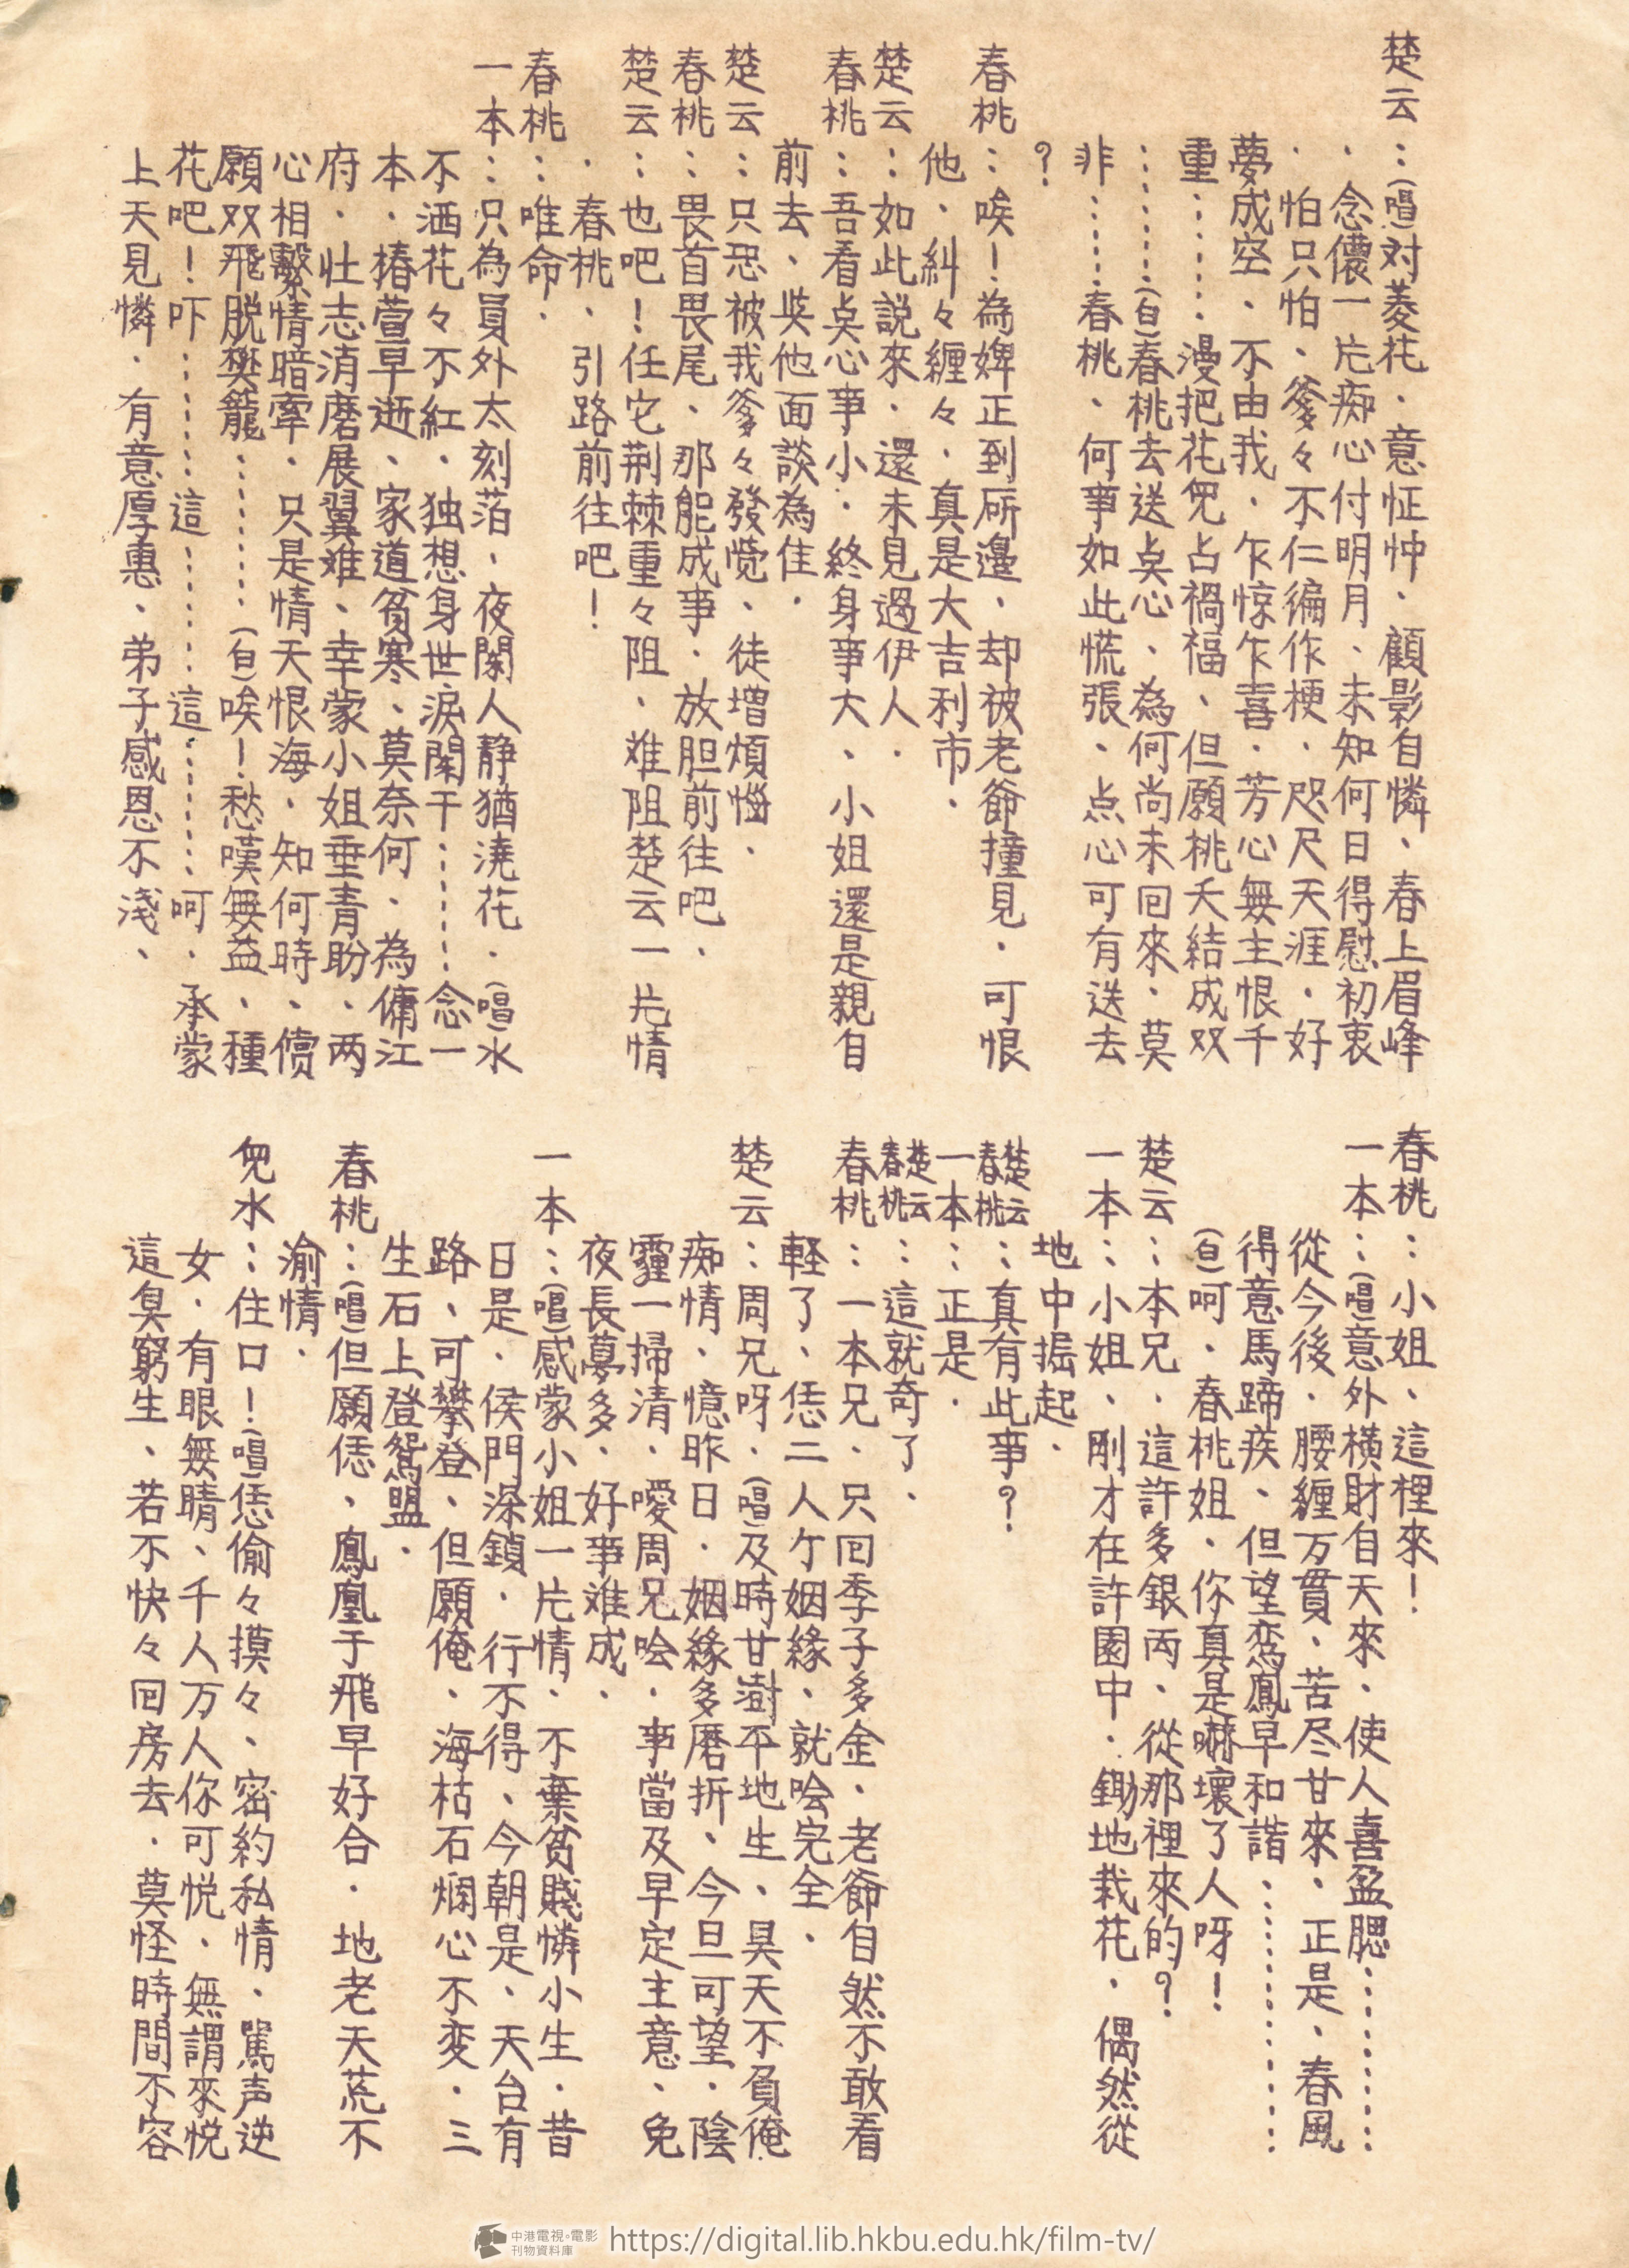 楚云：(唱)対菱花．意怔忡．顧影自憐、春上眉峰
．念儂一片痴心付明月、未知何日得慰初衷
．怕只怕、爹々不仁徧作梗．咫尺天涯．好
夢成空、不由我．乍惊乍喜．芳心無主恨千
重……漫把花兜占禍福、但願桃夭結成双
……(白)春桃去送点心、為何尚未回來、莫
非……春桃、何事如此慌張、点心可有送去
？
春桃：唉！為婢正到厛邊、却被老爺撞見．可恨
他、糾々纏々．真是大吉利市、
楚云：如此説來．還未見過伊人．
春桃：吾看点心事小．終身事大、小姐還是親自
前去、㒷他面談為佳．
楚云：只恐被我爹々發覺、徒増煩惱．
春桃：畏首畏尾、那能成事．放胆前往吧．
楚云：也吧！任它荆棘重々阻、难阻楚云一片情
．春桃、引路前往吧！
春桃：唯命．
一本：只為員外太刻萡，夜闌人静猶澆花．(唱)水
不洒花々不紅．独想身世淚闌干……念一
本．椿萱早逝、家道貧寒、莫奈何．為傭江
府．壮志消磨展翼难、幸蒙小姐垂青盼、两
心相繫情暗牽．只是情天恨海．知何時、償
願双飛脱樊籠……(白)唉！愁嘆無益、種
花吧！吓……這……這……呵．承蒙
上天見憐．有意厚惠、弟子感恩不淺、
春桃：小姐、這裡來！
一本：(唱)意外横財自天來．使人喜盈腮……
從今後．腰纏万貫、苦尽甘來、正是、春風
得意馬蹄疾、但望鸾鳳早和諧……
(白)呵．春桃姐、你真是嚇壞了人呀！
楚云：本兄．這許多銀両、從那裡來的？
一本：小姐、剛才在許園中．鋤地栽花．偶然從
地中掘起．
楚云
春桃：真有此事？
一本：正是．
楚云
春桃：這就奇了、
春桃：一本兄．只回季子多金、老爺自然不敢看
軽了、恁二人亇姻緣、就哙完全．
楚云：周兄呀．(唱)及時甘澍平地生、昊天不負俺
痴情、憶昨日．姻緣多磨折、今旦可望．陰
霾一掃清、噯周兄哙．事當及早定主意、免
夜長夢多、好事难成．
一本：(唱)感蒙小姐一片情．不棄貧賤憐小生．昔
日是．侯門深鎖．行不得、今朝是、天台有
路、可攀登、但願俺、海枯石爛心不变．三
生石上登鴛盟．
春桃：(唱)但願恁、鳳凰于飛早好合．地老天荒不
渝情．
兜水：住口！(唱)恁偷々摸々、密約私情、駡声逆
女．有眼無晴、千人万人你可悦．無謂來悦
這臭窮生、若不快々回房去．莫怪時間不容
中港電視。電影
刊物資料庫
https://digital.lib.hkbu.edu.hk/film-tv/